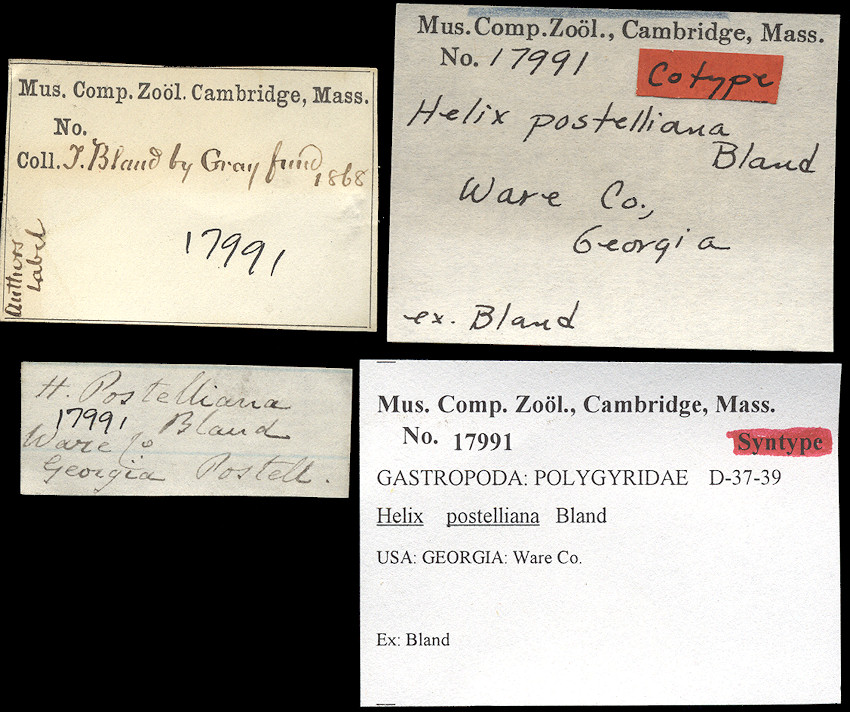 Mus. Comp. Zoöl. Cambridge, Mass.
No.
Coll. T. Bland by Gray fund
1868
17991
Authors
Label
Mus. Comp. Zoöl., Cambridge, Mass.
No. 17991
Cotype
Helix postelliana
Bland
Ware Co.,
Georgia
ex. Bland
H. Postelliana
17991 Bland
Ware Co
Georgia Postell.
Mus. Comp. Zoöl., Cambridge, Mass.
No. 17991
Syntype
GASTROPODA: POLYGYRIDAE D-37-39
Helix postelliana Bland
USA: GEORGIA: Ware Co.
Ex: Bland